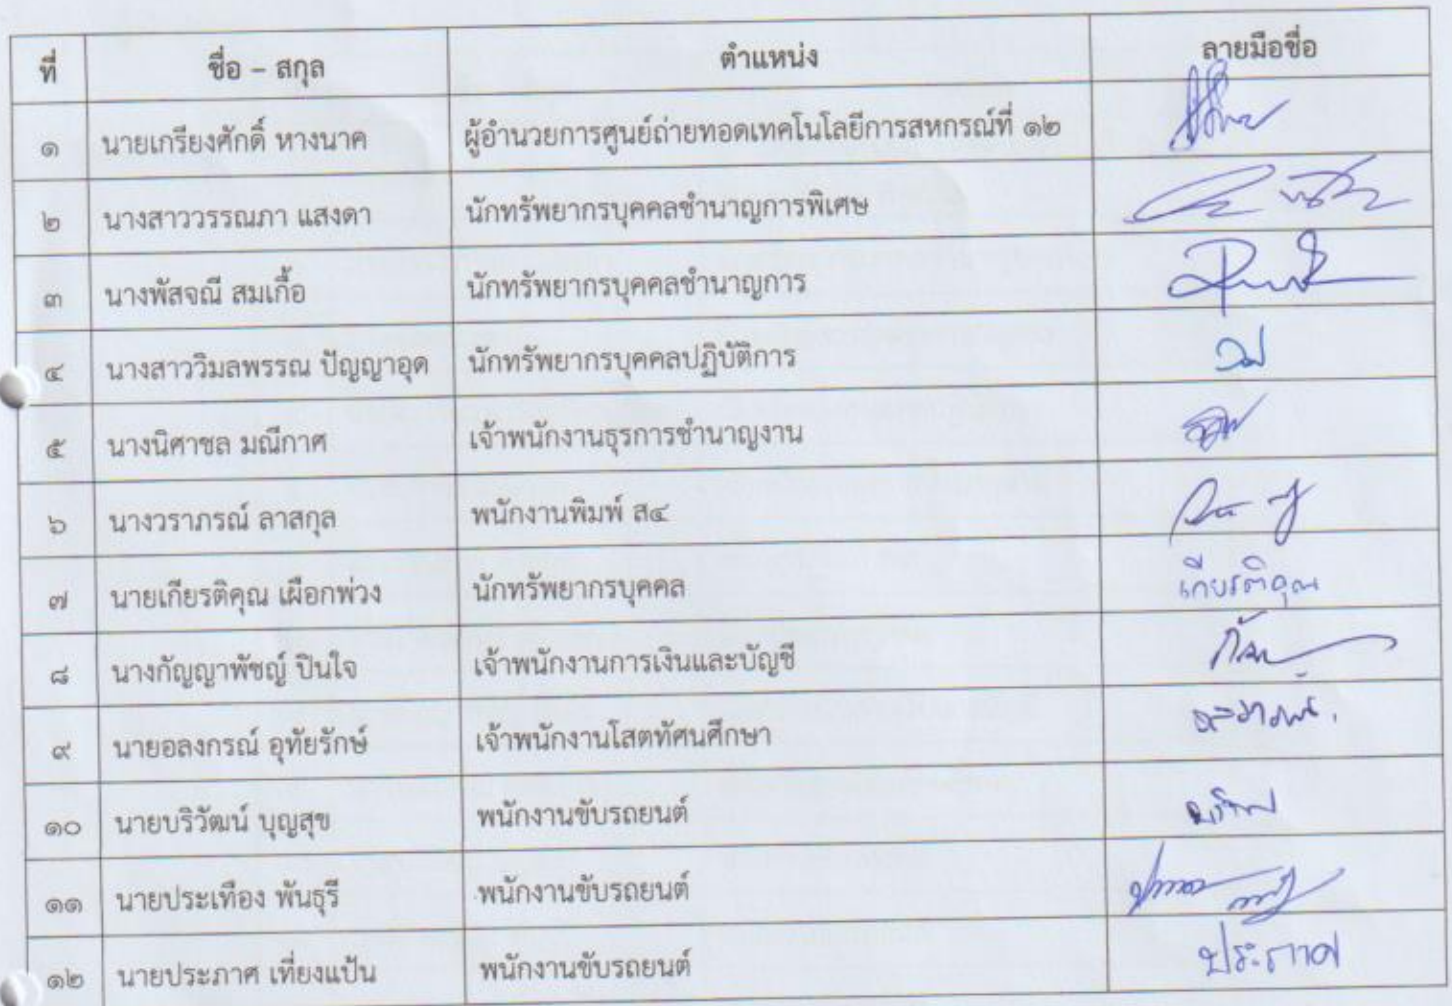 ที่ ชื่อ – สกุล ตำแหน่ง ลายมือชื่อ
๑ นายเกรียงศักดิ์ หางนาค ผู้อำนวยการศูนย์ถ่ายทอดเทคโนโลยีการสหกรณ์ที่ ๑๒
๒ นางสาววรรณภา แสงดา นักทรัพยากรบุคคลชำนาญการพิเศษ
๓ นางพัสจณี สมเกื้อ นักทรัพยากรบุคคลชำนาญการ
๔ นางสาววิมลพรรณ ปัญญาอุด นักทรัพยากรบุคคลปฏิบัติการ
๕ นางนิศาชล มณีกาศ เจ้าพนักงานธุรการชำนาญงาน
๖ นางวราภรณ์ ลาสกุล พนักงานพิมพ์ ส๔
๗ นายเกียรติคุณ เผือกพ่วง นักทรัพยากรบุคคล เกียรติคุณ
๘ นางกัญญาพัชญ์ ปินใจ เจ้าพนักงานการเงินและบัญชี
๙ นายอลงกรณ์ อุทัยรักษ์ เจ้าพนักงานโสตทัศนศึกษา
๑๐ นายบริวัฒน์ บุญสุข พนักงานขับรถยนต์
๑๑ นายประเทือง พันธุรี พนักงานขับรถยนต์
๑๒ นายประภาศ เที่ยงแป้น พนักงานขับรถยนต์ ประภาศ